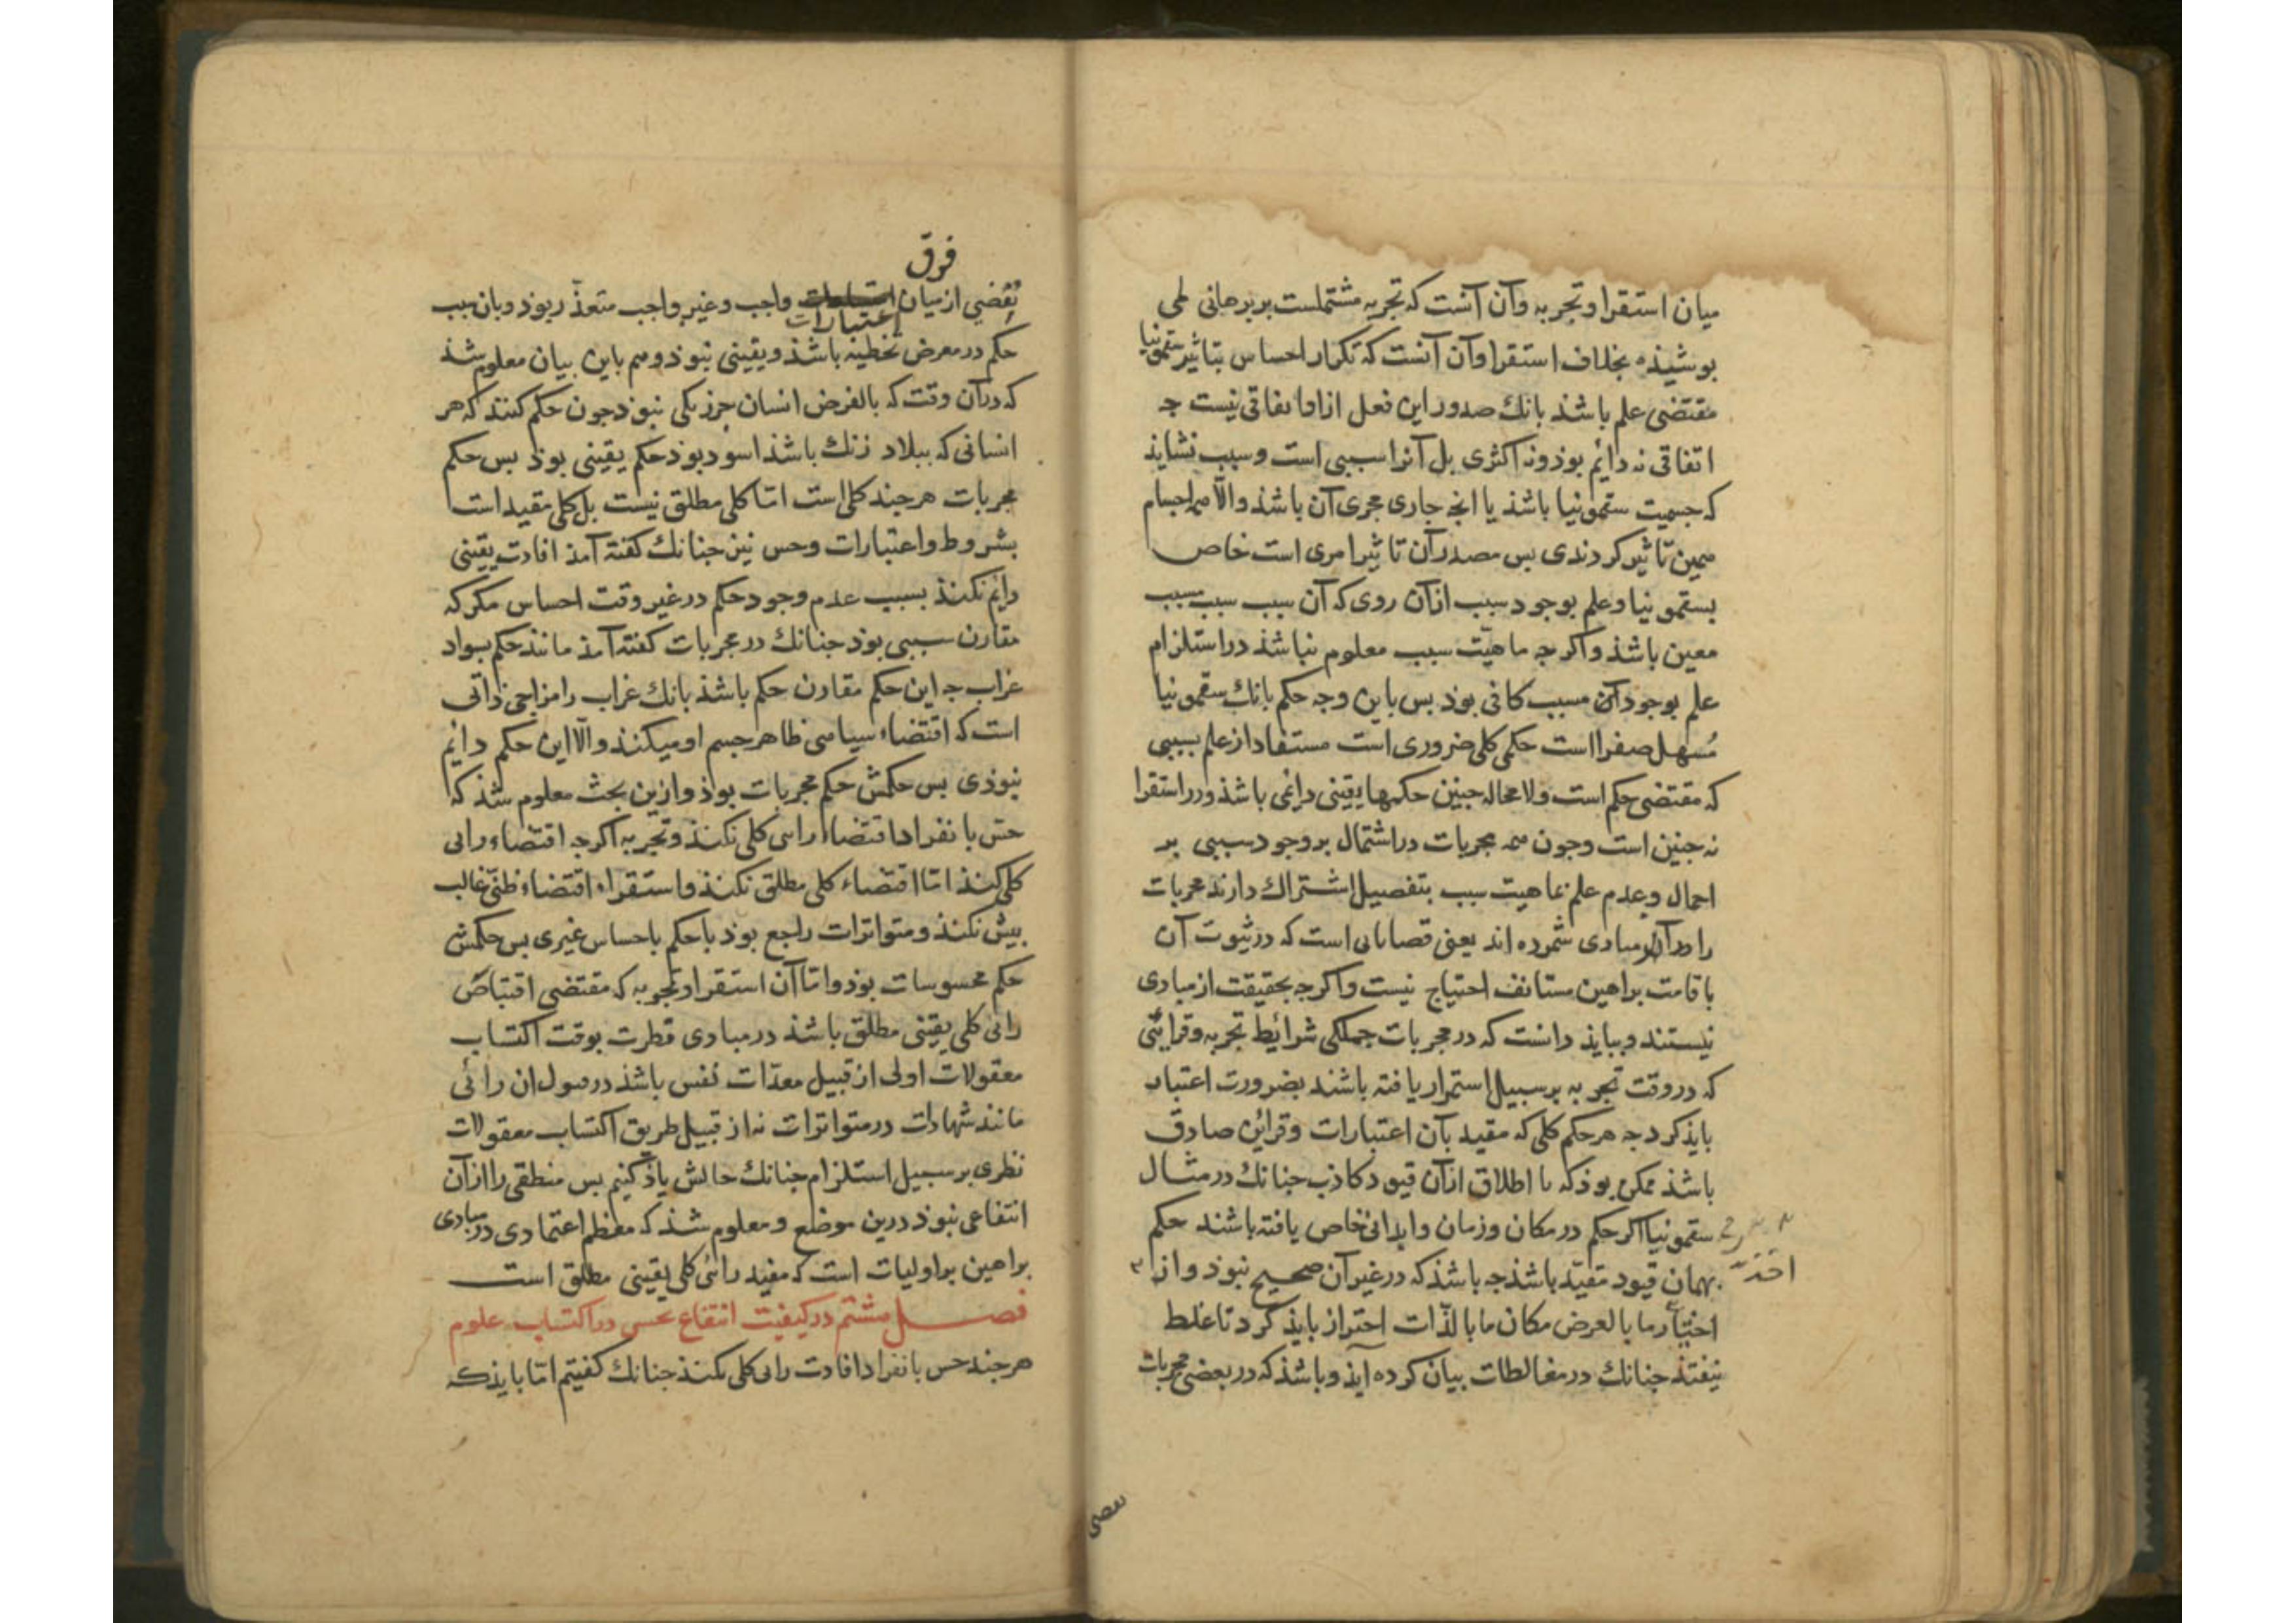 میان استقرا و تجربه و آن آنست که تجربه مشتملست بر برهانی لمی
بوشیذه بخلاف استقرا و آن آنست که تکرار احساس بتاثیر سقمونیا
مقتضی علم باشذ بانك صدور این فعل ازو اتفاقی نیست جه
اتفاقی نه دایم بوذ و نه اکثری بل آنرا سببی است و سبب نشایذ
که جسمیت سقمونیا باشذ یا انجه جاری مجری آن باشذ و الّا همه اجسام
همین تاثیر کردندی بس مصدر آن تاثیر امری است خاص
بسقمونیا و علم بوجود سبب از آن روی که آن سبب سبب مسبب
معین باشذ و اکر جه ماهیّت سبب معلوم نباشذ در استلزام
علم بوجود آن مسبب کافی بوذ بس باین وجه حکم بانك سقمونیا
مُسهل صفرا است حکمی کلی ضروری است مستفاد از علم بسببی
که مقتضی حکم است ولا محاله جنین حکمها یقینی دایمی باشذ و در استقرا
نه جنین است و جون همه مجربات در اشتمال بر وجود سببی بر
اجمال و عدم علم بماهیت سبب بتفصیل اشتراك دارند مجربات
را در مبادی شمرده اند یعنی قضایایی است که در ثبوت آن
باقامت براهین مستانف احتیاج نیست و اکرجه بحقیقت از مبادی
نیستند و ببایذ دانست که در مجربات جملکی شرایط تجربه و قراینی
که در وقت تجربه بر سبیل استمرار یافته باشند بضرورت اعتبار
بایذ کرد جه هر حکم کلی که مقید بآن اعتبارات و قراین صادق
باشذ ممکن بوذ که با اطلاق از آن قیود کاذب جنانك در مثال
سقمونیا اکر حکم در مکان و زمان و ابدانی خاص یافته باشند حکم
بهمان قیود مقیّد باشذ جه باشذ که در غیر آن صحیح نبوذ و از
اخذ
اختیار ما بالعرض مکان ما بالذّات احتراز بایذ کرد تا غلط
نیفتذ جنانك در مغالطات بیان کرده آیذ و باشذ که در بعضی مجربات
فرق
تقضی از میان واجب و غیر واجب متعذّر بوذ و بان سبب
اعتبارات
حکم در معرض تخطیه باشذ و یقینی نبوذ و هم باین بیان معلوم شذ
که در آن وقت که بالفرض انسان جز زنکی نبوذ جون حکم کنند که هر
انسانی که ببلاد زنك باشذ اسود بوذ حکم یقینی بوذ بس حکم
مجربات هر جند کلی است امّا کلی مطلق نیست بل کلی مقید است
بشروط و اعتبارات و حس نیز جنانك کفته آمذ افادت یقینی
دایم نکنذ بسبب عدم وجود حکم در غیر وقت احساس مکر که
مقارن سببی بوذ جنانك در مجربات کفته آمذ مانند حکم بسواد
غراب جه این حکم مقارن حکم باشذ بانك غراب را مزاجی ذاتی
است که اقتضاء سیاهی ظاهر جسم او میکنذ و الّا این حکم دایم
نبوذی بس حکمش حکم مجربات بوذ و ازین بحث معلوم شذ که
حسّ بانفراد اقتضاء رایی کلی نکنذ و تجربه اکرجه اقتضاء رایی
کلی کنذ امّا اقتضاء کلی مطلق نکنذ و استقراء اقتضاء ظنّی غالب
بیش نکنذ و متواترات راجع بوذ با حکم باحساس غیری بس حکمش
حکم محسوسات بوذ و امّا آن استقرا و تجربه که مقتضی اقتناص
رایی کلی یقینی مطلق باشذ در مبادی فطرت بوقت اکتساب
معقولات اولی از قبیل معدّات نفس باشذ در حصول ان رائی
مانند شهادات در متواترات نه از قبیل طریق اکتساب معقولات
نظری بر سبیل استلزام جنانك حالش یاذ کنیم بس منطقی را از آن
انتفاعی نبوذ درین موضع و معلوم شذ که معظم اعتمادی در مبادی
براهین بر اولیات است که مفید رائی کلی یقینی مطلق است
فصل هشتم در کیفیت انتفاع بحس در اکتساب علوم
هر جند حس بانفراد افادت رایی کلی نکنذ جنانك کفتیم امّا بایذ که